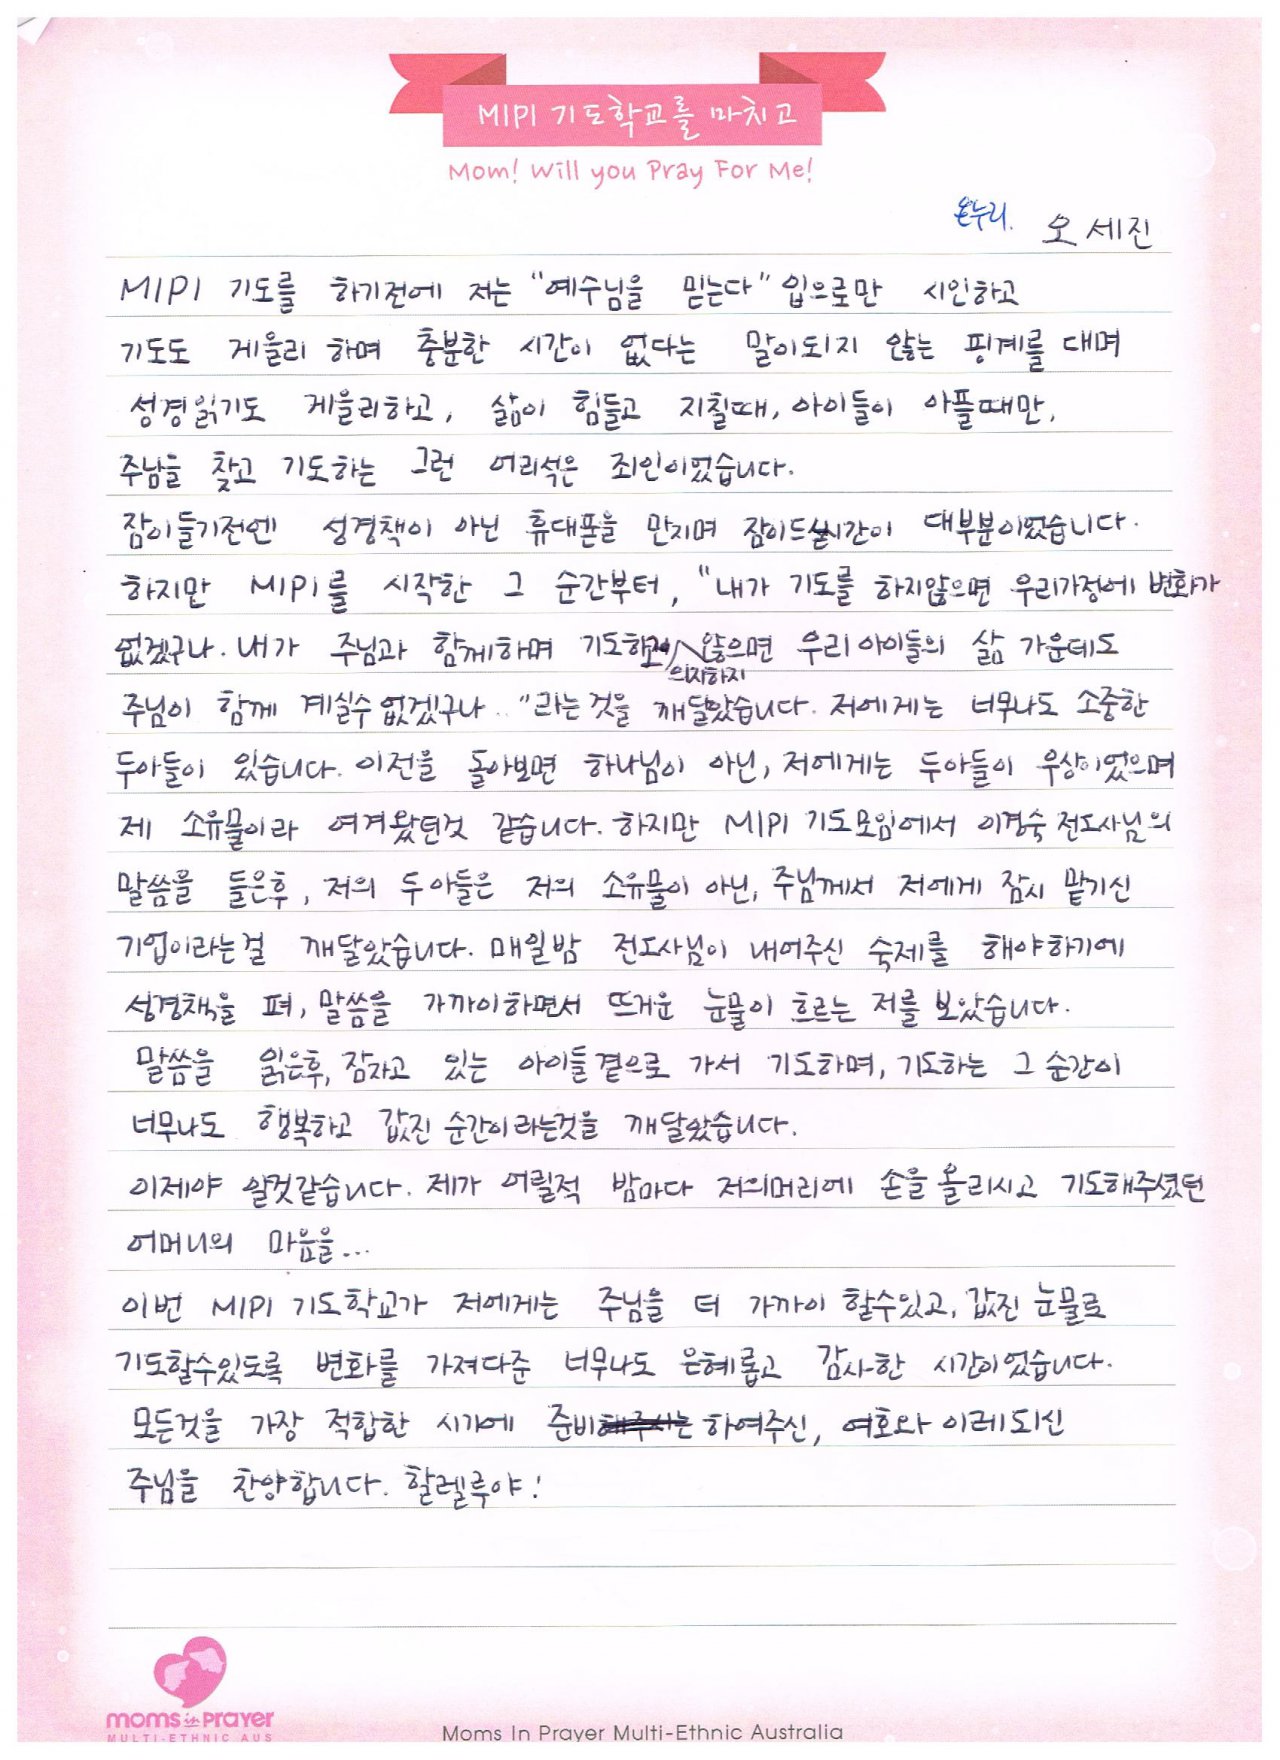 MIPI 기도학교를 마치고
Mom! Will you Pray For Me!
온누리. 오세진
MIPI 기도를 하기전에 저는 "예수님을 믿는다" 입으로만 시인하고
기도도 게을리 하며 충분한 시간이 없다는 말이되지 않는 핑계를 대며
성경읽기도 게을리하고, 삶이 힘들고 지칠때, 아이들이 아플때만,
주님을 찾고 기도하는 그런 어리석은 죄인이었습니다.
잠이들기전엔 성경책이 아닌 휴대폰을 만지며 잠이드실시간이 대부분이었습니다.
하지만 MIPI를 시작한 그 순간부터, "내가 기도를 하지않으면 우리가정에 변화가
없겠구나. 내가 주님과 함께하며 기도하고 않으면 우리 아이들의 삶 가운데도
의지하지
주님이 함께 계실수 없겠구나.." 라는 것을 깨달았습니다. 저에게는 너무나도 소중한
두아들이 있습니다. 이전을 돌아보면 하나님이 아닌, 저에게는 두아들이 우상이었으며
제 소유물이라 여겨왔던것 같습니다. 하지만 MIPI 기도모임에서 이경숙 전도사님의
말씀을 들은후, 저의 두 아들은 저의 소유물이 아닌, 주님께서 저에게 잠시 맡기신
기업이라는걸 깨달았습니다. 매일밤 전도사님이 내어주신 숙제를 해야하기에
성경책을 펴, 말씀을 가까이하면서 뜨거운 눈물이 흐르는 저를 보았습니다.
말씀을 읽은후, 잠자고 있는 아이들곁으로 가서 기도하며, 기도하는 그 순간이
너무나도 행복하고 값진 순간이라는것을 깨달았습니다.
이제야 알것같습니다. 제가 어릴적 밤마다 저의머리에 손을 올리시고 기도해주셨던
어머니의 마음을...
이번 MIPI 기도학교가 저에게는 주님을 더 가까이 할수있고, 값진 눈물로
기도할수있도록 변화를 가져다준 너무나도 은혜롭고 감사한 시간이었습니다.
모든것을 가장 적합한 시기에 준비하여주신, 여호와 이레되신
주님을 찬양합니다. 할렐루야!
moms in Prayer
MULTI-ETHNIC AUS
Moms In Prayer Multi-Ethnic Australia